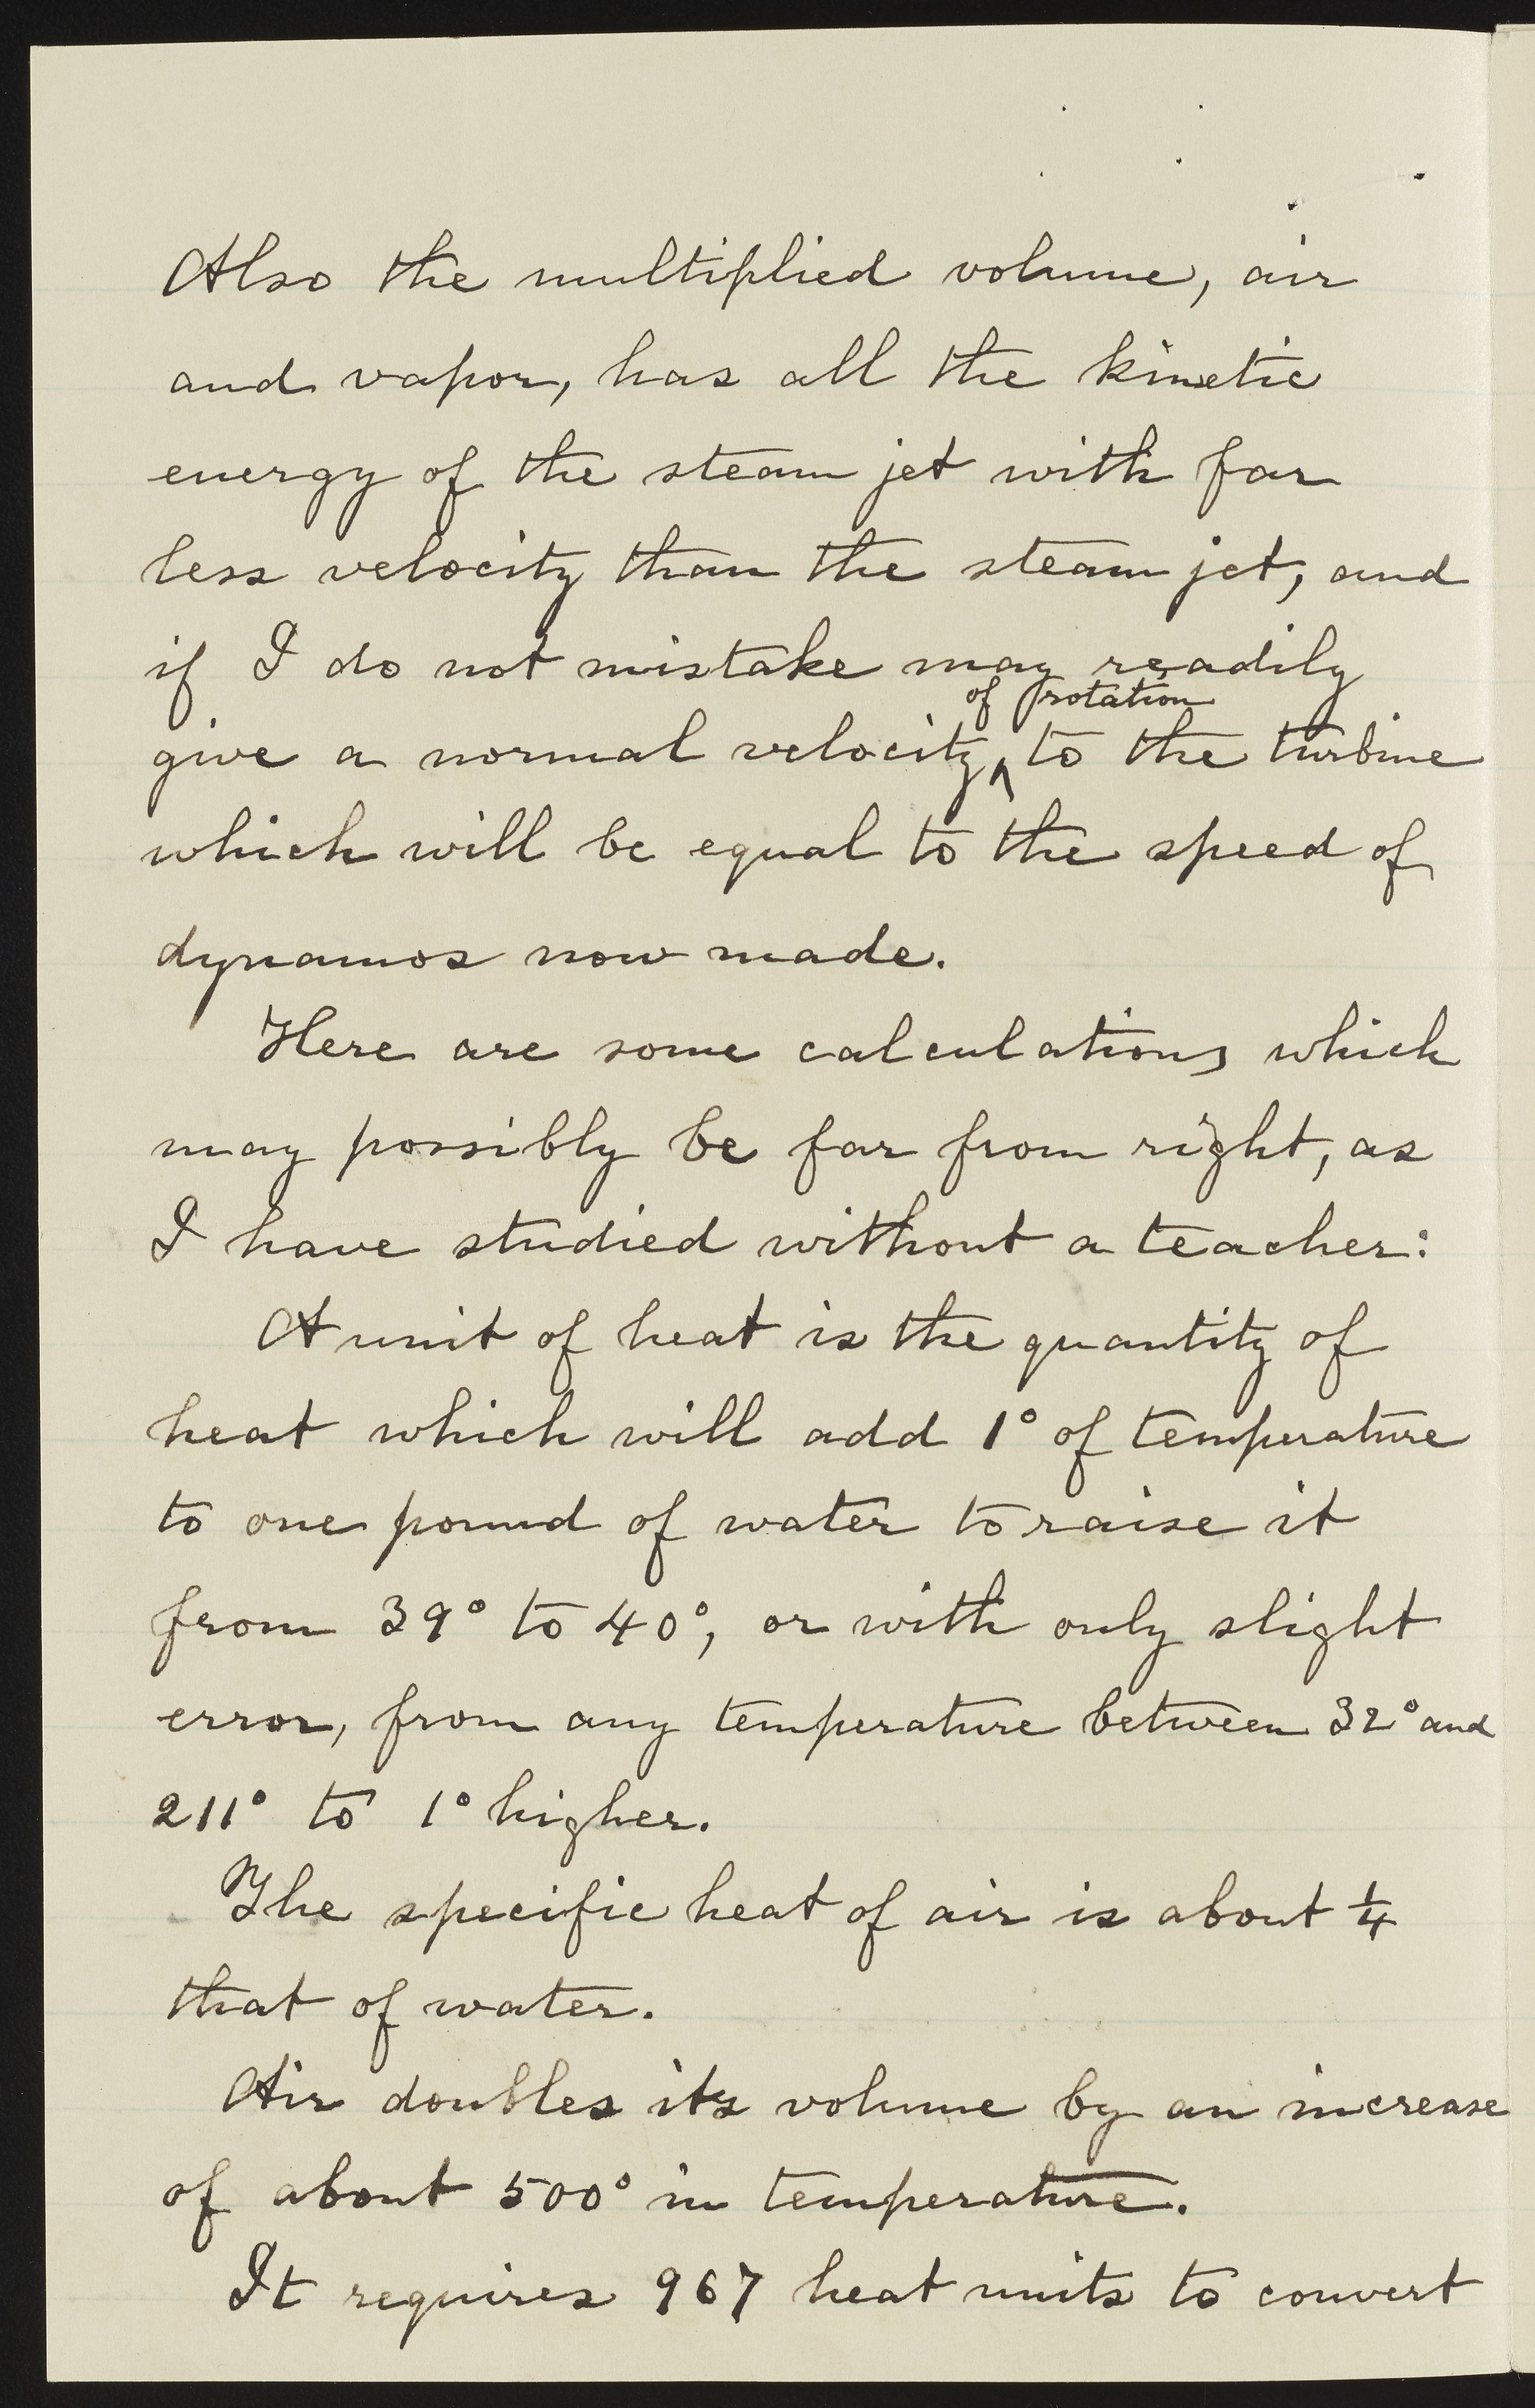 Also the multiplied volume, air
and vapor, has all the kinetic
energy of the steam jet with far
less velocity than the steam jet, and
if I do not mistake may readily
of rotation
give a normal velocity ‸ to the turbine
which will be equal to the speed of
dynamos now made.
Here are some calculations which
may possibly be far from right, as
I have studied without a teacher:
A unit of heat is the quantity of
heat which will add 1° of temperature
to one pound of water to raise it
from 39° to 40°, or with only slight
error, from any temperature between 32° and
211° to 1° higher.
The specific heat of air is about ¼
that of water.
Air doubles its volume by an increase
of about 500° in temperature.
It requires 967 heat units to convert